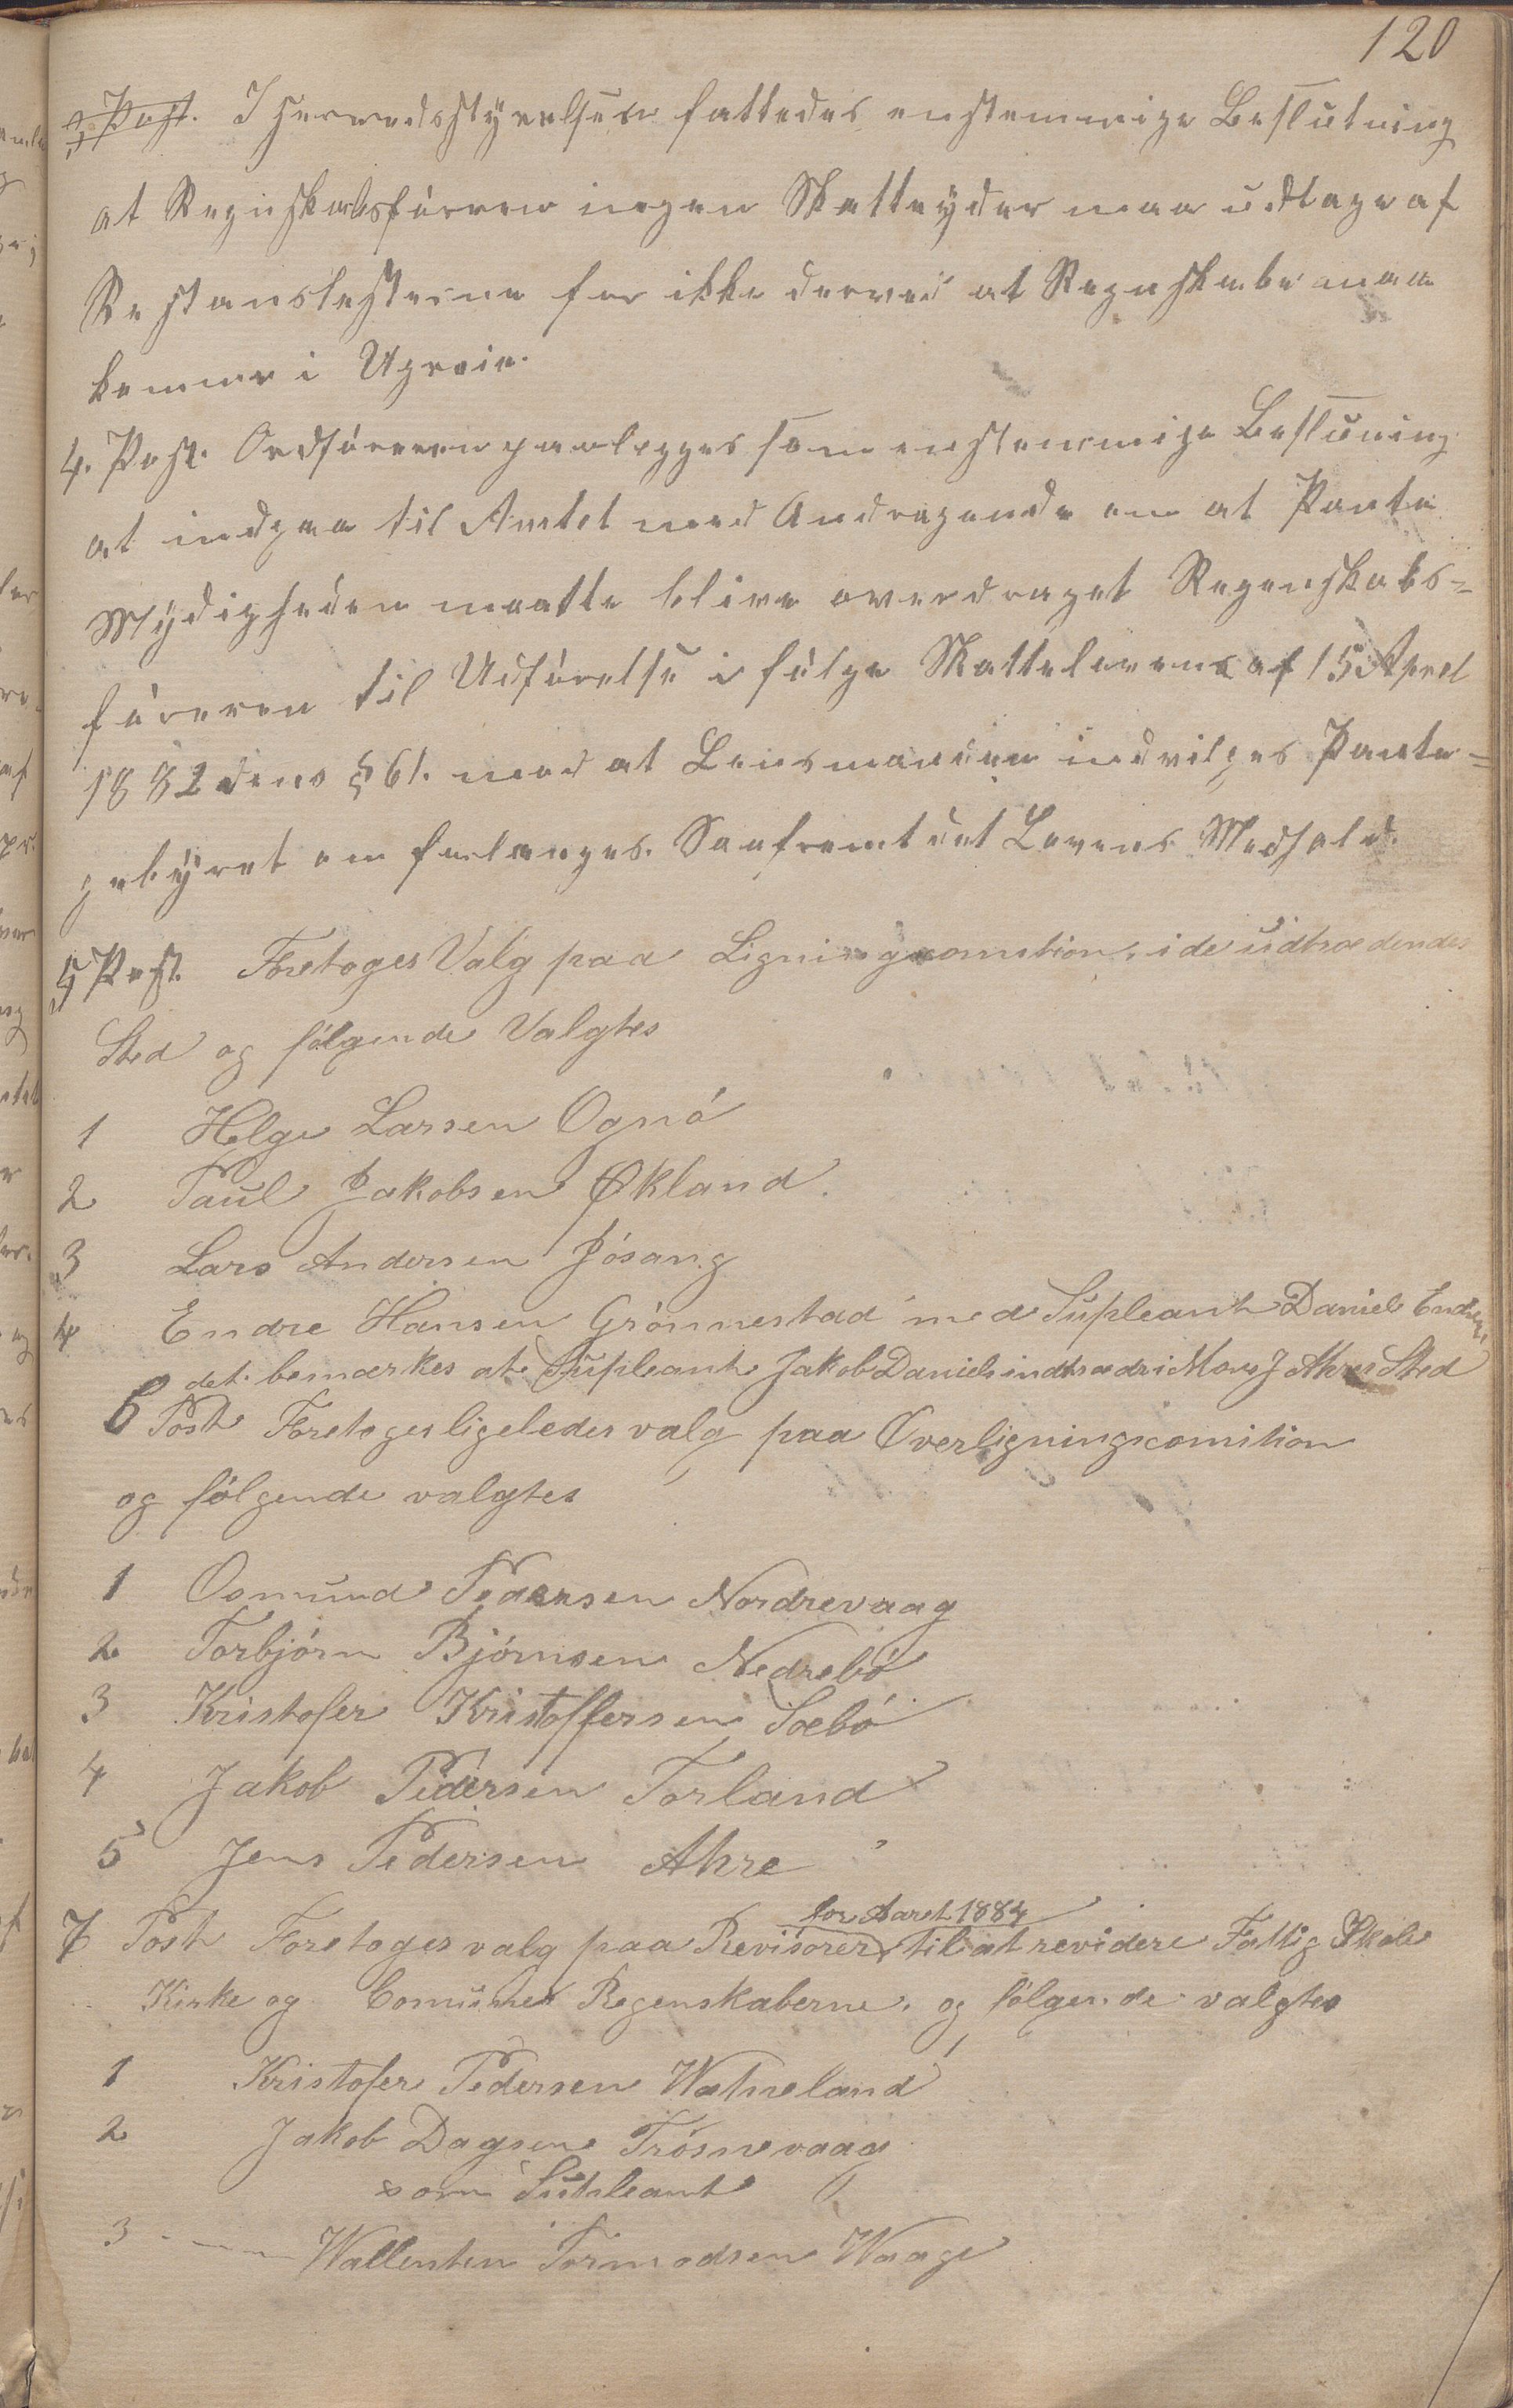 120
3 Post. I Herredsstyrelsen fattedes enstemmige Beslutning
at Regnskabsføreren ingen Skatteyder maa udtage af
Restanslesterne for ikke derved at Regnskabe maa
komme i Ugreie.
4. Post. Ordføreren paalegges som enstemmige Besluning
at indgaa til Amtet med Andragende om at Pante
Mydigheden maatte blive overdraget Regenskabs-
føreren til Udførelse i følge Skattelovens af 15 April
1882 dens § 61. mod at Lensmanden indvilges Pante-
gebyret om forlanges. Saafremt det Lovens Medhold.
5 Post. Foretoges Valg paa Ligningscomition, i de udtrædendes
Sted og følgende Valgtes
1 Helge Larsen Ognø
2 Paul Jakobsen Økland.
3 Lars Andersen Jøsang
4 Endre Hansen Grønnestad med Supleant Daniel
det bemærkes at Supleant Jakob Daniels indtræder i Mons J Ahres Sted
6 Post Foretoges ligeledes valg paa Overligningscomition
og følgende valgtes
1 Osmund Pedersen Nordrevaag
2 Torbjørn Bjørnsen Nedrebø
3 Kristofer Kristoffersen Sæbø
4 Jakob Pedersen Torland
5 Jens Pedersen Ahre
for Aaret 1884
7 Post Foretoges valg paa Revisorer til at revidere Fattig Skole
Kirke og Comunes Regenskaberne. og følgende valgtes
1 Kristofer Pedersen Watneland
2 Jakob Dagsen Trosnevaag
som Supleant
3 Wallentin Tormodsen Waage